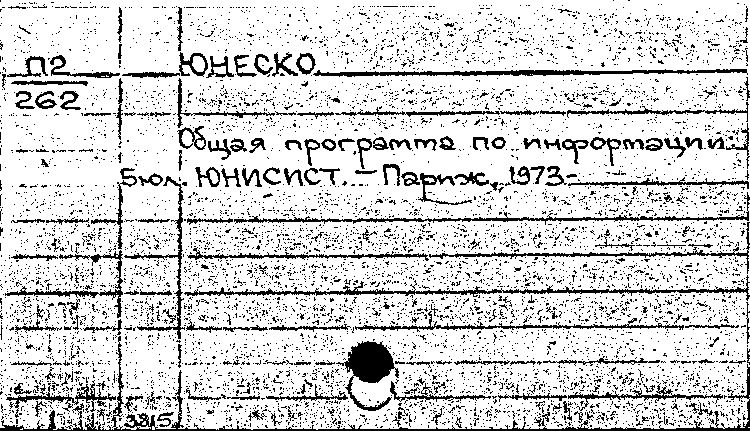 П2 ЮНЕСКО.
262
Общая программа по информации.
Бюл. ЮНИСИСТ. — Париж, 1973-
3815